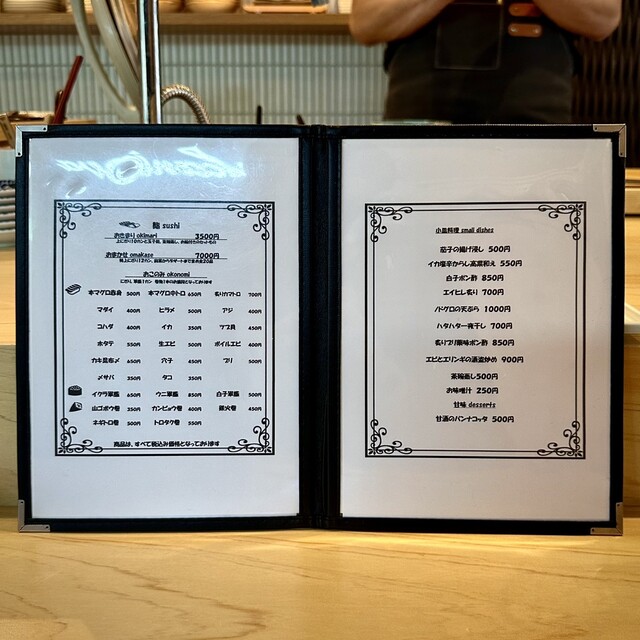 鮨 sushi
おきまり okimari 3500円
上にぎり10カンと玉子焼、茶碗蒸し、お椀付きのセットもの
おまかせ omakase 7000円
おこのみ okonomi
本マグロ赤身 500円 本マグロ中トロ 650円 炙りカマトロ 700円
マダイ 400円 ヒラメ 500円 アジ 400円
コハダ 400円 イカ 350円 ツブ貝 450円
ホタテ 550円 生エビ 500円 ボイルエビ 400円
カキ昆布〆 650円 穴子 650円 ブリ 500円
〆サバ 350円 タコ 350円
イクラ軍艦 650円 ウニ軍艦 850円 白子軍艦 500円
山ゴボウ巻 350円 カンピョウ巻 400円 鉄火巻 450円
ネギトロ巻 500円 トロタク巻 550円
商品は、すべて税込み価格となっております
小皿料理 small dishes
茄子の揚げ浸し 500円
イカ塩辛からし高菜和え 550円
白子ポン酢 850円
エイヒレ炙り 700円
ノドグロの天ぷら 1000円
ハタハタ一夜干し 700円
炙りブリ薬味ポン酢 850円
エビとエリンギの酒盗炒め 900円
茶碗蒸し500円
お味噌汁 250円
甘味 desserts
甘酒のパンナコッタ 500円